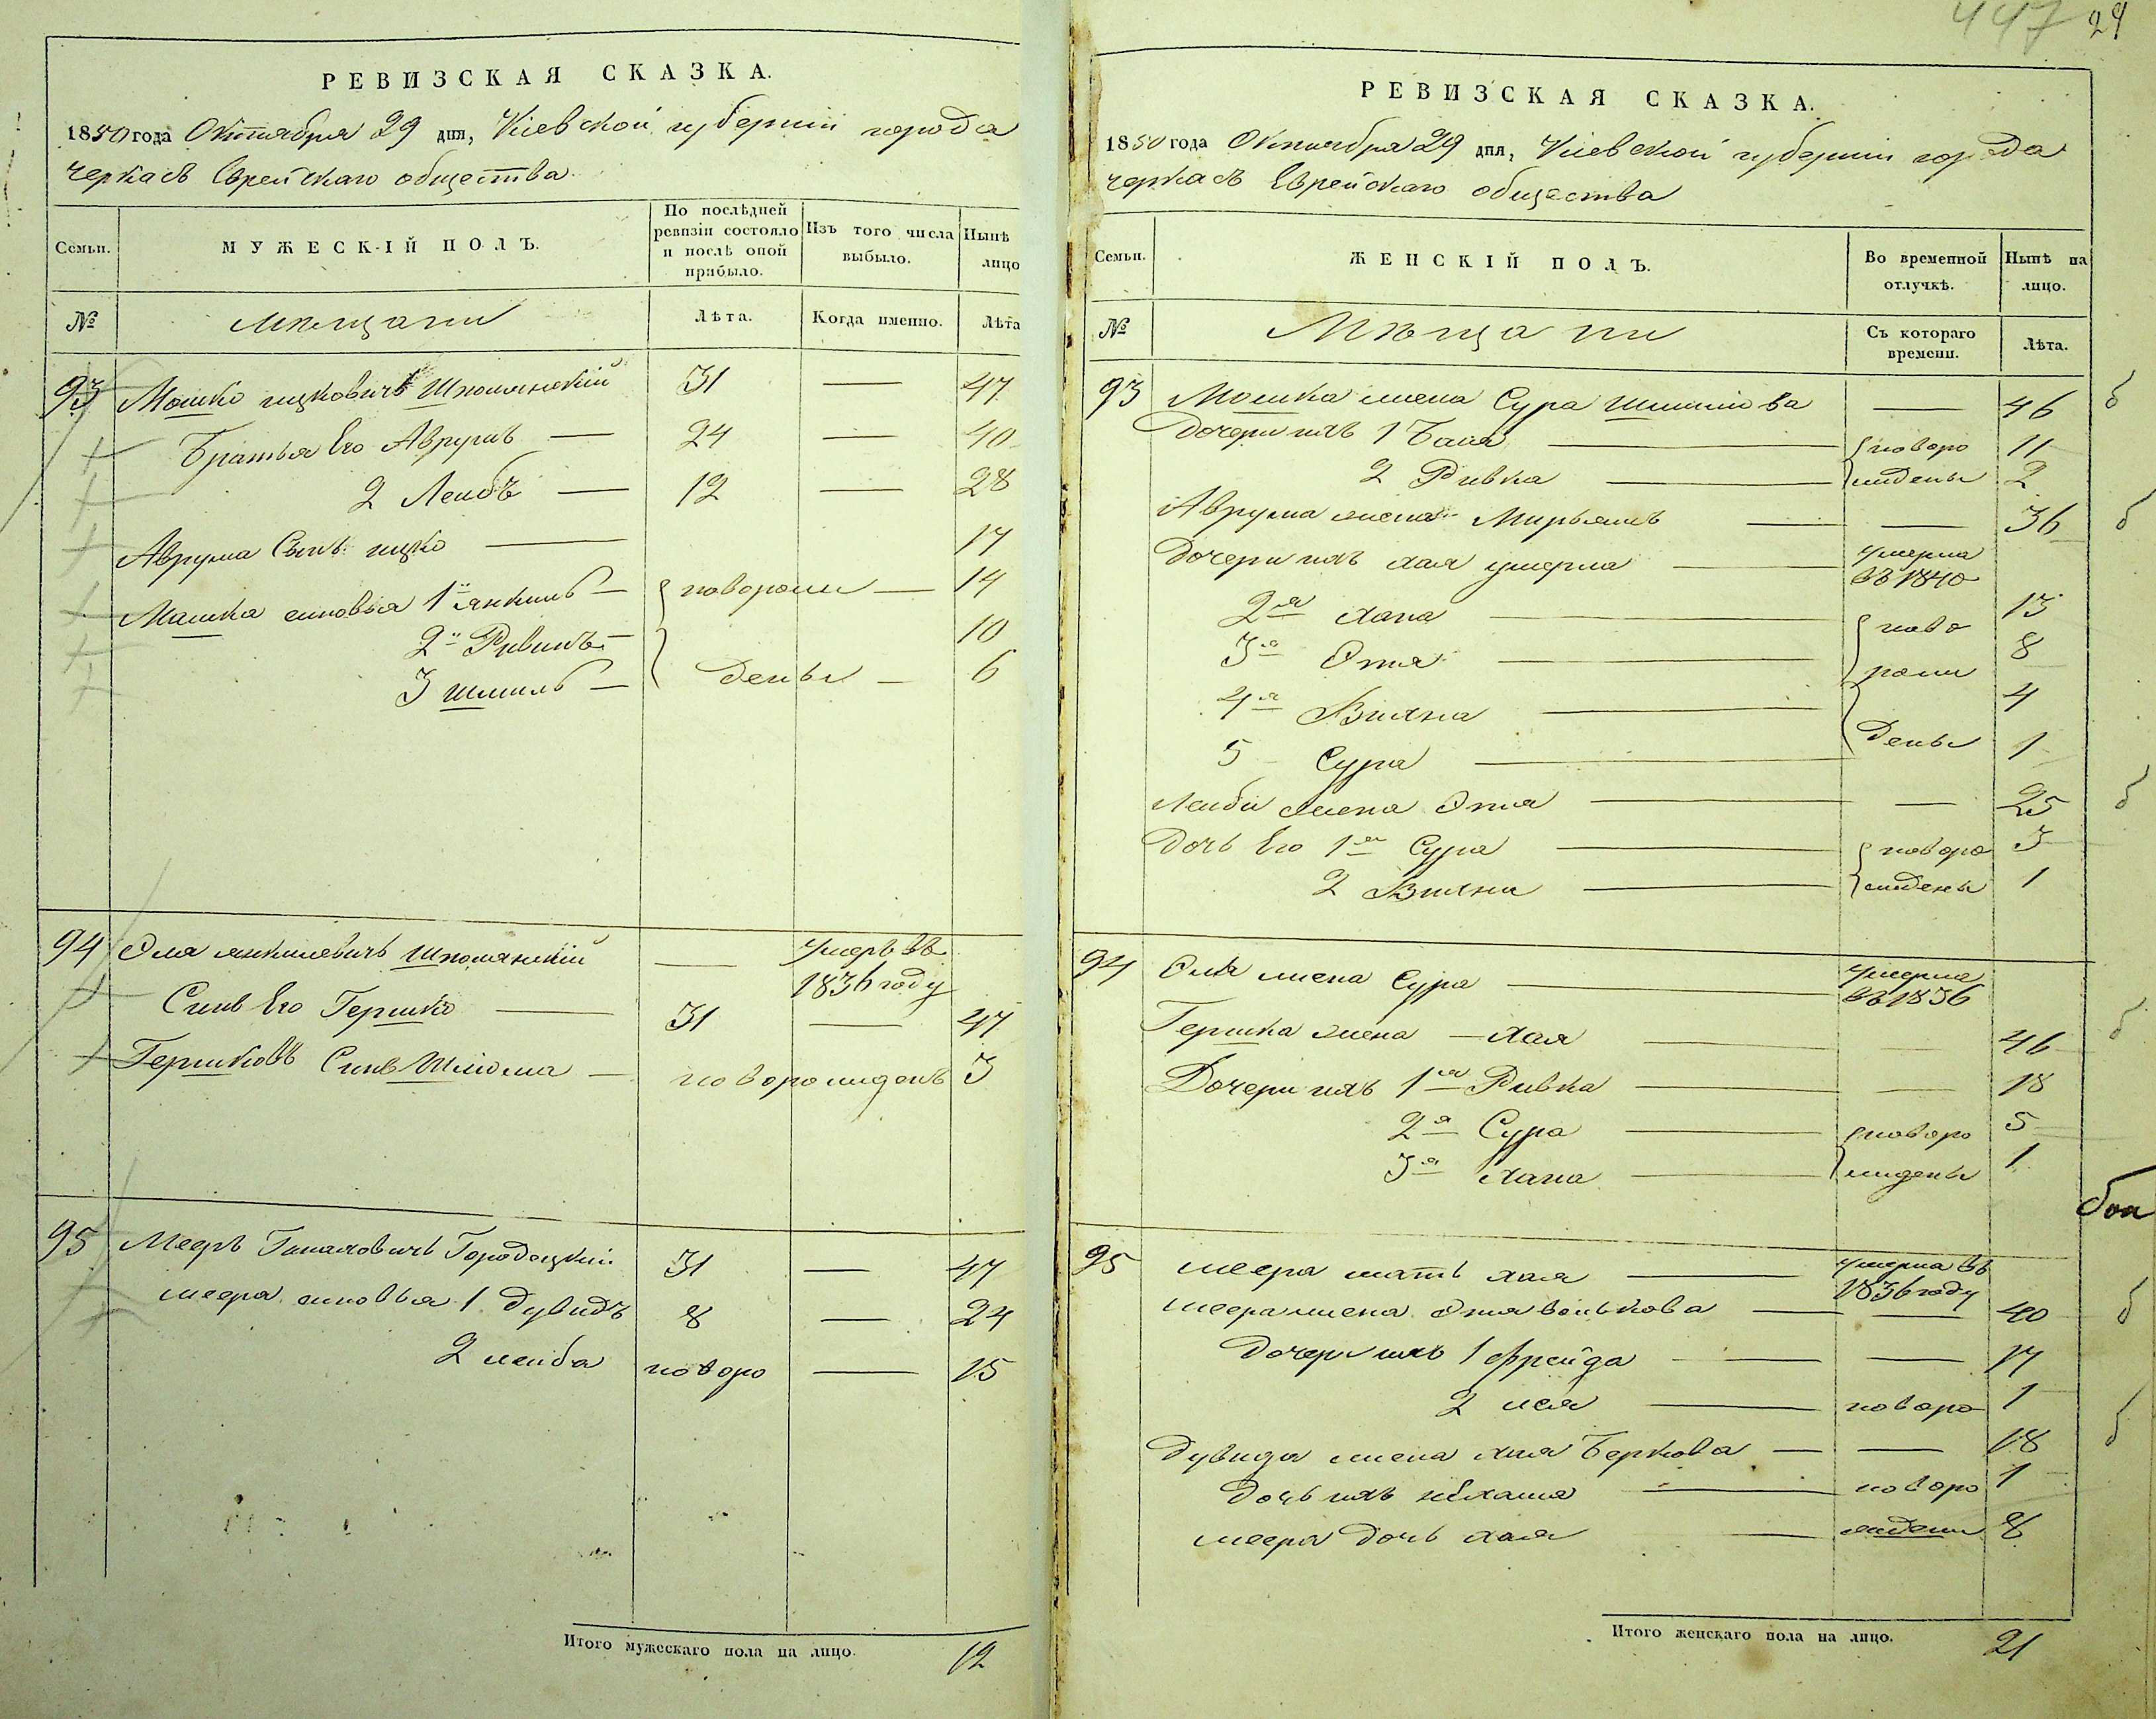 РЕВИЗСКАЯ СКАЗКА.
1850 года Октября 29 дня, Кіевской губерніи города
Черкасъ Еврейскаго общества
Семьи. МУЖЕСКІЙ ПОЛЪ. По послѣдней ревизіи состояло и послѣ оной прибыло. Изъ того числа выбыло. Нынѣ лицо
№ Мѣщани Лѣта. Когда именно. Лѣта
93 Мошко ицковичъ Шполянскій 31 — 47
Братья Его Аврумъ — 24 — 40
2 Леибъ — 12 — 28
Аврума Сынъ ицко — 17
Мошка синовья 1й янкиль — новорож — 14
2й Рувинъ — 10
3 шмиль — дены — 6
94 Еля янкилевичъ Шполянскій — умеръ въ 1836 году
Синъ Его Гершко — 31 — 47
Гершковъ Синъ Шлиома — новорожденъ 3
95 Мееръ Городецкий 31 — 47
меера синовья 1 Дувидъ 8 — 24
2 леиба новоро — 15
Итого мужескаго пола на лицо. 12
447 29
РЕВИЗСКАЯ СКАЗКА.
1850 года Октября 29 дня, Кіевской губерніи города
черкасъ Еврейскаго общества
Семьи. ЖЕНСКІЙ ПОЛЪ. Во временной отлучкѣ. Нынѣ на лицо.
№ Мѣщани Съ котораго времени. Лѣта.
93 Мошка жена Сура — 46
Дочери ихъ 1 Бася — новоро 11
2 Ривка — жденые 2
Аврума жена Мирьямъ — — 36
Дочери ихъ хая умерла — умерла въ 1840
2я хана — ново 13
3я Этя — рож 8
4я — 4
5 Сура — дены 1
Леиби жена Этя — — 25
Дочь Его 1я Сура — новоро 3
2 — ждены 1
94 Еля жена Сура — умерла въ 1836
Гершка жена — хая — — 46
Дочери ихъ 1я Ривка — — 18
2я Сура — новоро 5
3я хана — ждены 1
95 меера мать хая — умерла въ 1836 году
меера жена Этя волькова — — 40
Дочери ихъ 1 фрейда — — 17
2 лея — новоро 1
Дувида жена хая Беркова — — 18
Дочь ихъ нехама — новоро 1
меера дочь хая — ждени 8
Итого женскаго пола на лицо. 21